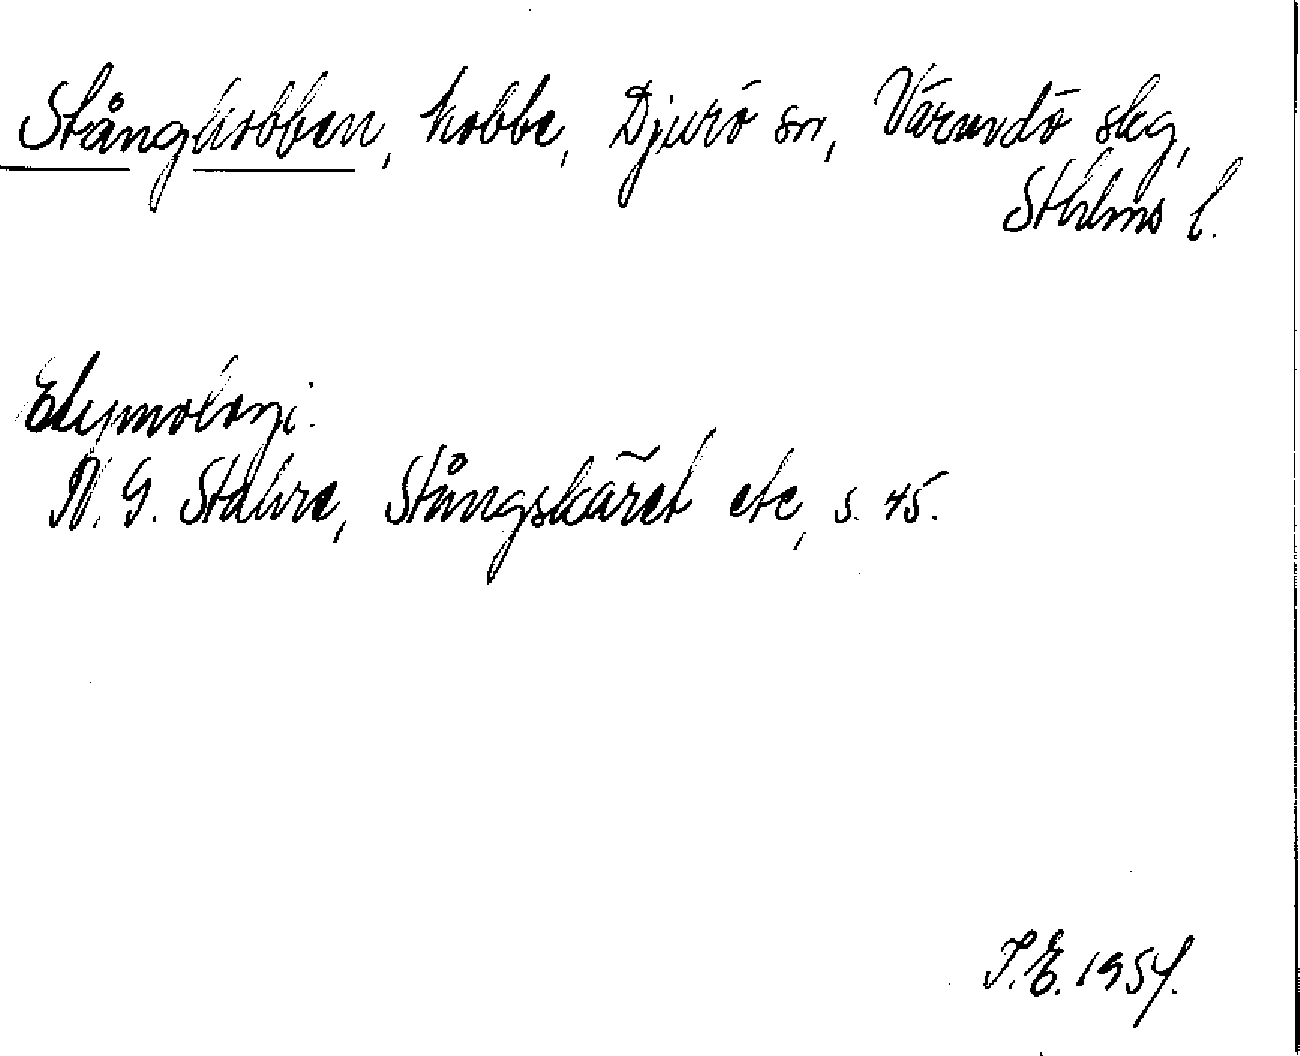 Stångkobben, kobbe, Djurö sn, Värmdö skg,
Sthlms l.
Etymologi.
N. G. Stahre, Stångskäret etc, s. 45.
I.E. 1954.